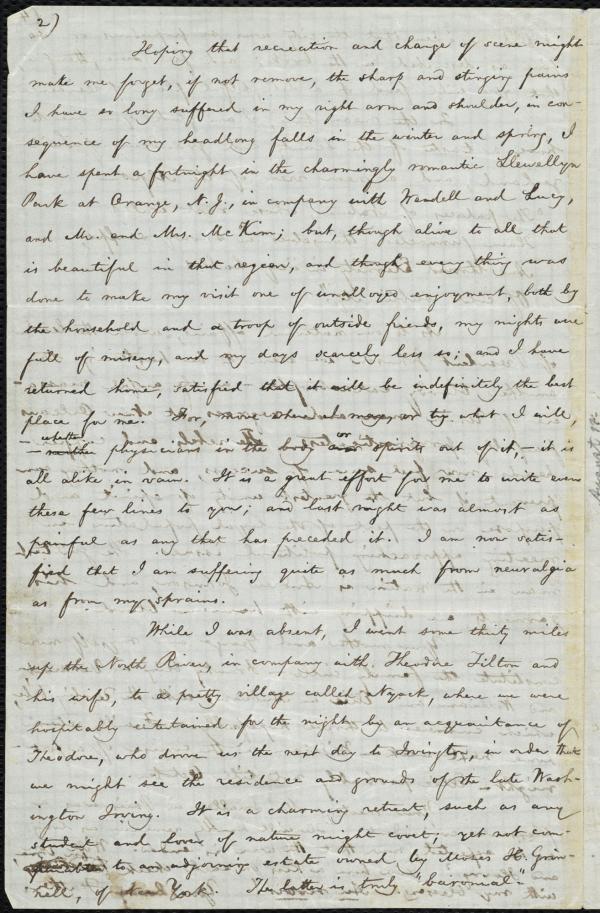 2)
Hoping that recreation and change of scene might
make me forget, if not remove, the sharp and stinging pains
I have so long suffered in my right arm and shoulder, in con-
sequence of my headlong falls in the winter and spring, I
have spent a fortnight in the charmingly romantic Llewellyn
Park at Orange, N.J., in company with Wendell and Lucy,
and Mr. and Mrs. McKim; but, though alive to all that
is beautiful in that region, and though every thing was
done to make my visit one of unalloyed enjoyment, both by
the household and a troop of outside friends, my nights were
full of misery, and my days scarcely less so; and I have
returned home, satisfied that it will be indefinitely the last
place for me. For, move where I may, or try what I will,
— whether physicians in the body or spirits out of it, — it is
all alike in vain. It is a great effort for me to write even
these few lines to you; and last night was almost as
painful as any that has preceded it. I am now satis-
fied that I am suffering quite as much from neuralgia
as from my sprains.
While I was absent, I went some thirty miles
up the North River, in company with Theodore Tilton and
his wife, to a pretty village called Nyack, where we were
hospitably entertained for the night by an acquaintance of
Theodore, who drove us the next day to Irvington, in order that
we might see the residence and grounds of the late Wash-
ington Irving. It is a charming retreat, such as any
student and lover of nature might covet; yet not com-
to an adjoining estate owned by Moses H. Grin-
nell, of New York. The latter is truly "baronial"